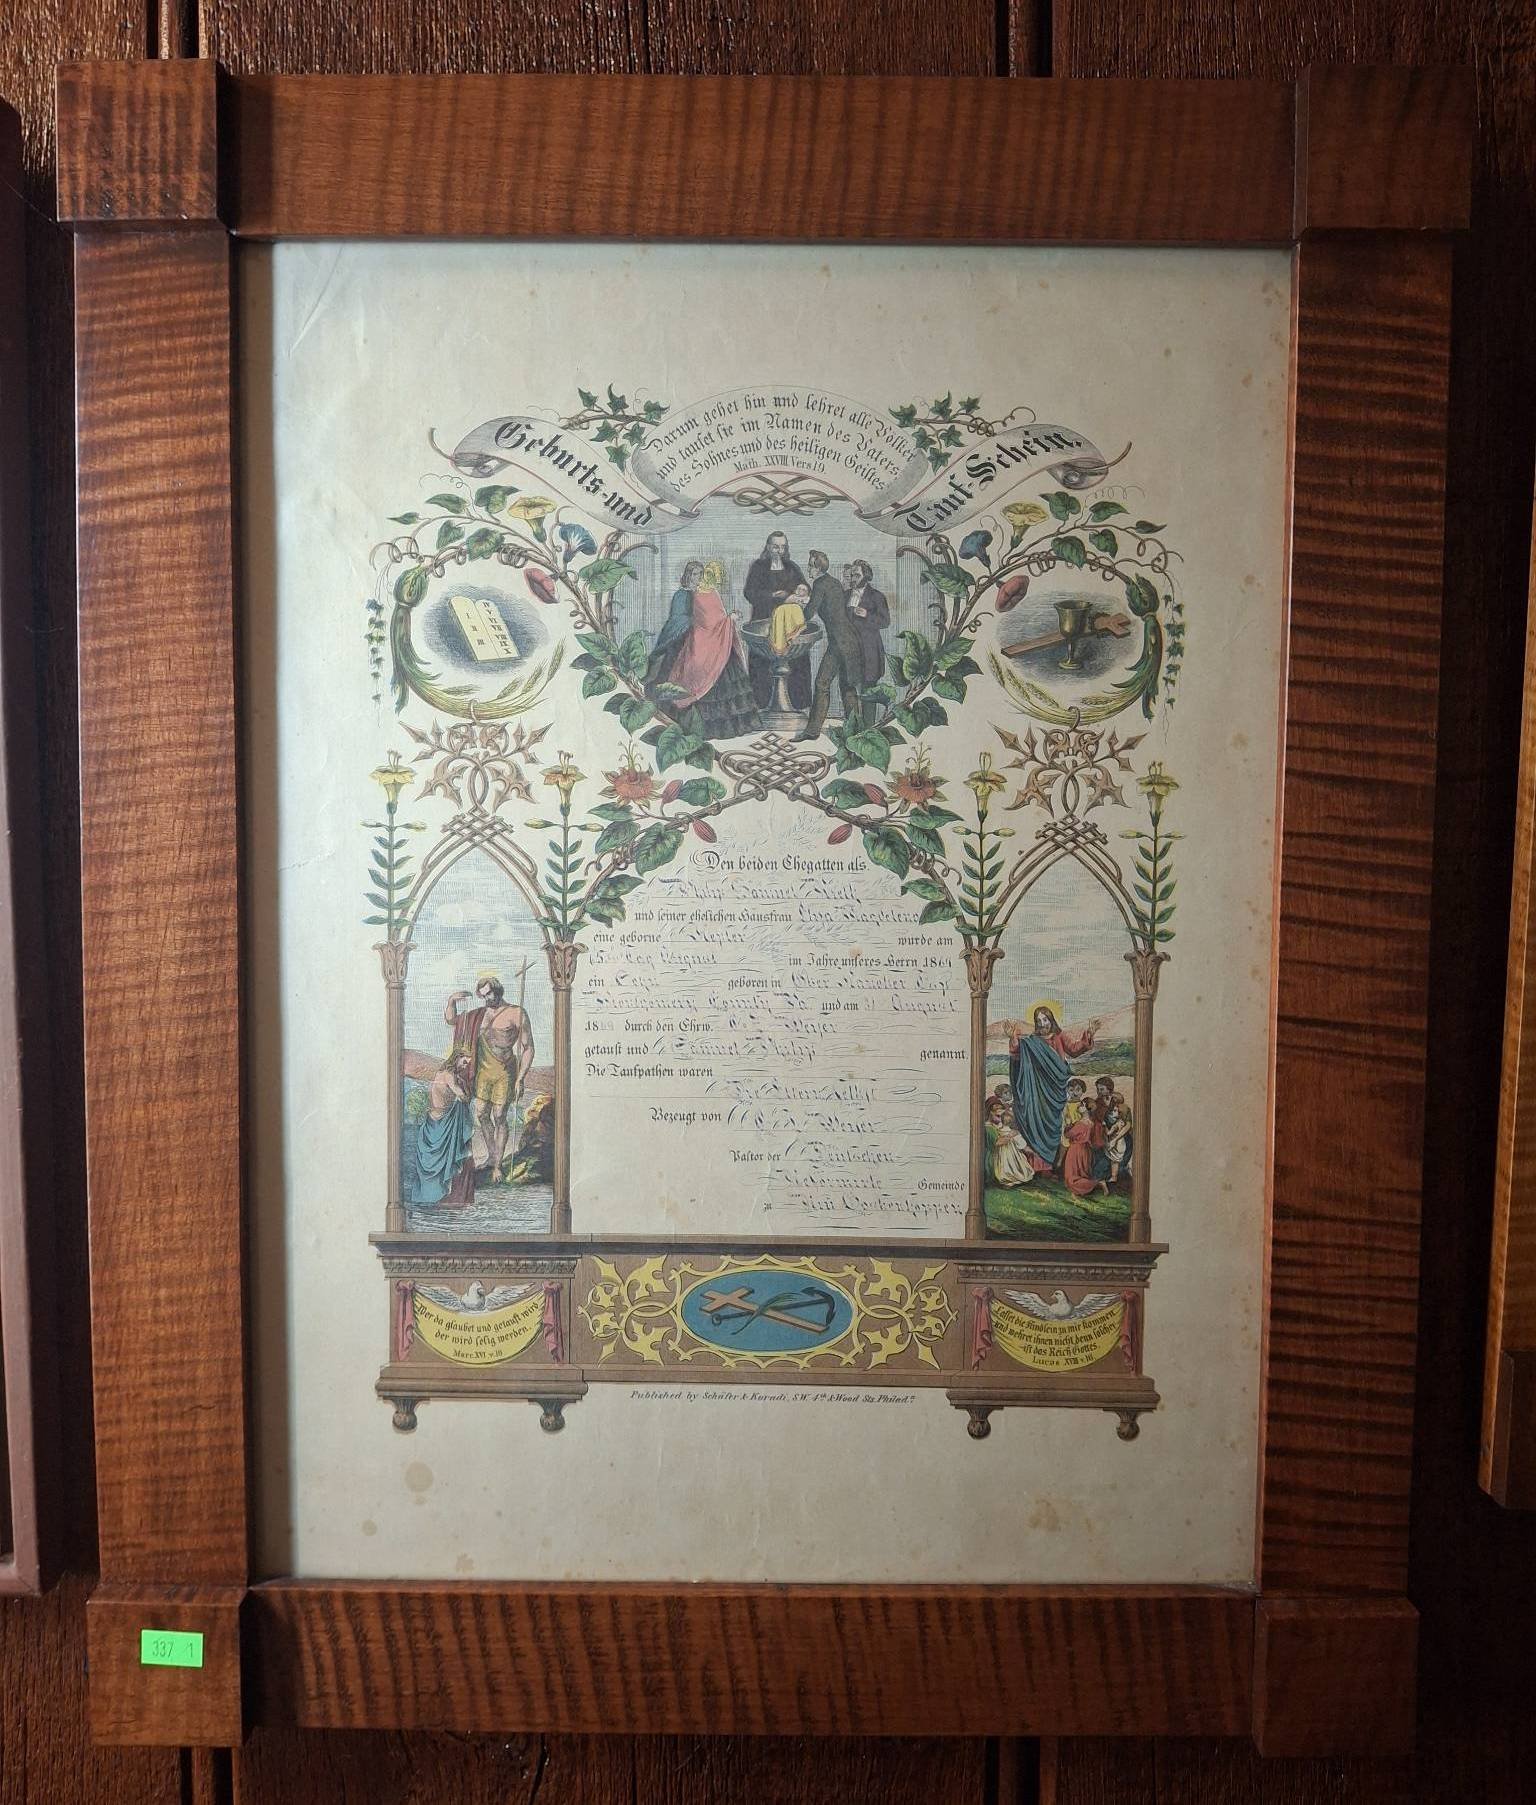 Darum gehet hin und lehret alle Völker
und taufet sie im Namen des Vaters
des Sohnes und des heiligen Geistes
Math. XXVIII Vers 19.
Geburts-und
Tauf-Schein.
I
II
III
IV
V
VI
VII
VIII
IX
X
Den beiden Ehegatten als.
Philip Samuel
und seiner ehelichen Hausfrau Magdelena
eine geborne Kepler wurde am
Tag August im Jahre unseres Herrn 1869
ein Sohn geboren in Ober Hanover
Montgomery County Pa und am 31 August
1869 durch den Ehrw. C. Z. Weiser
getauft und Samuel Philip genannt.
Die Taufpathen waren
Die Eltern selbst
Bezeugt von C. Z. Weiser
Pastor der Deutschen
Reformirte Gemeinde
zu Neu Goschenhoppen
Wer da glaubet und getauft wird
der wird selig werden.
Marc. XVI v. 16
Lasset die Kindlein zu mir kommen
und wehret ihnen nicht denn solcher
ist das Reich Gottes.
Lucas XVIII v. 16
Published by Schäfer & Koradi, S.W. 4th & Wood Sts. Philada.
337 1